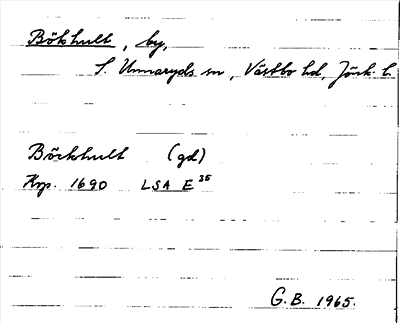 Bökhult, by,
S. Unnaryds sn, Västbo hd, Jönk. l.
Böckhult (gd)
Krp. 1690 LSA E 35
G.B. 1965.